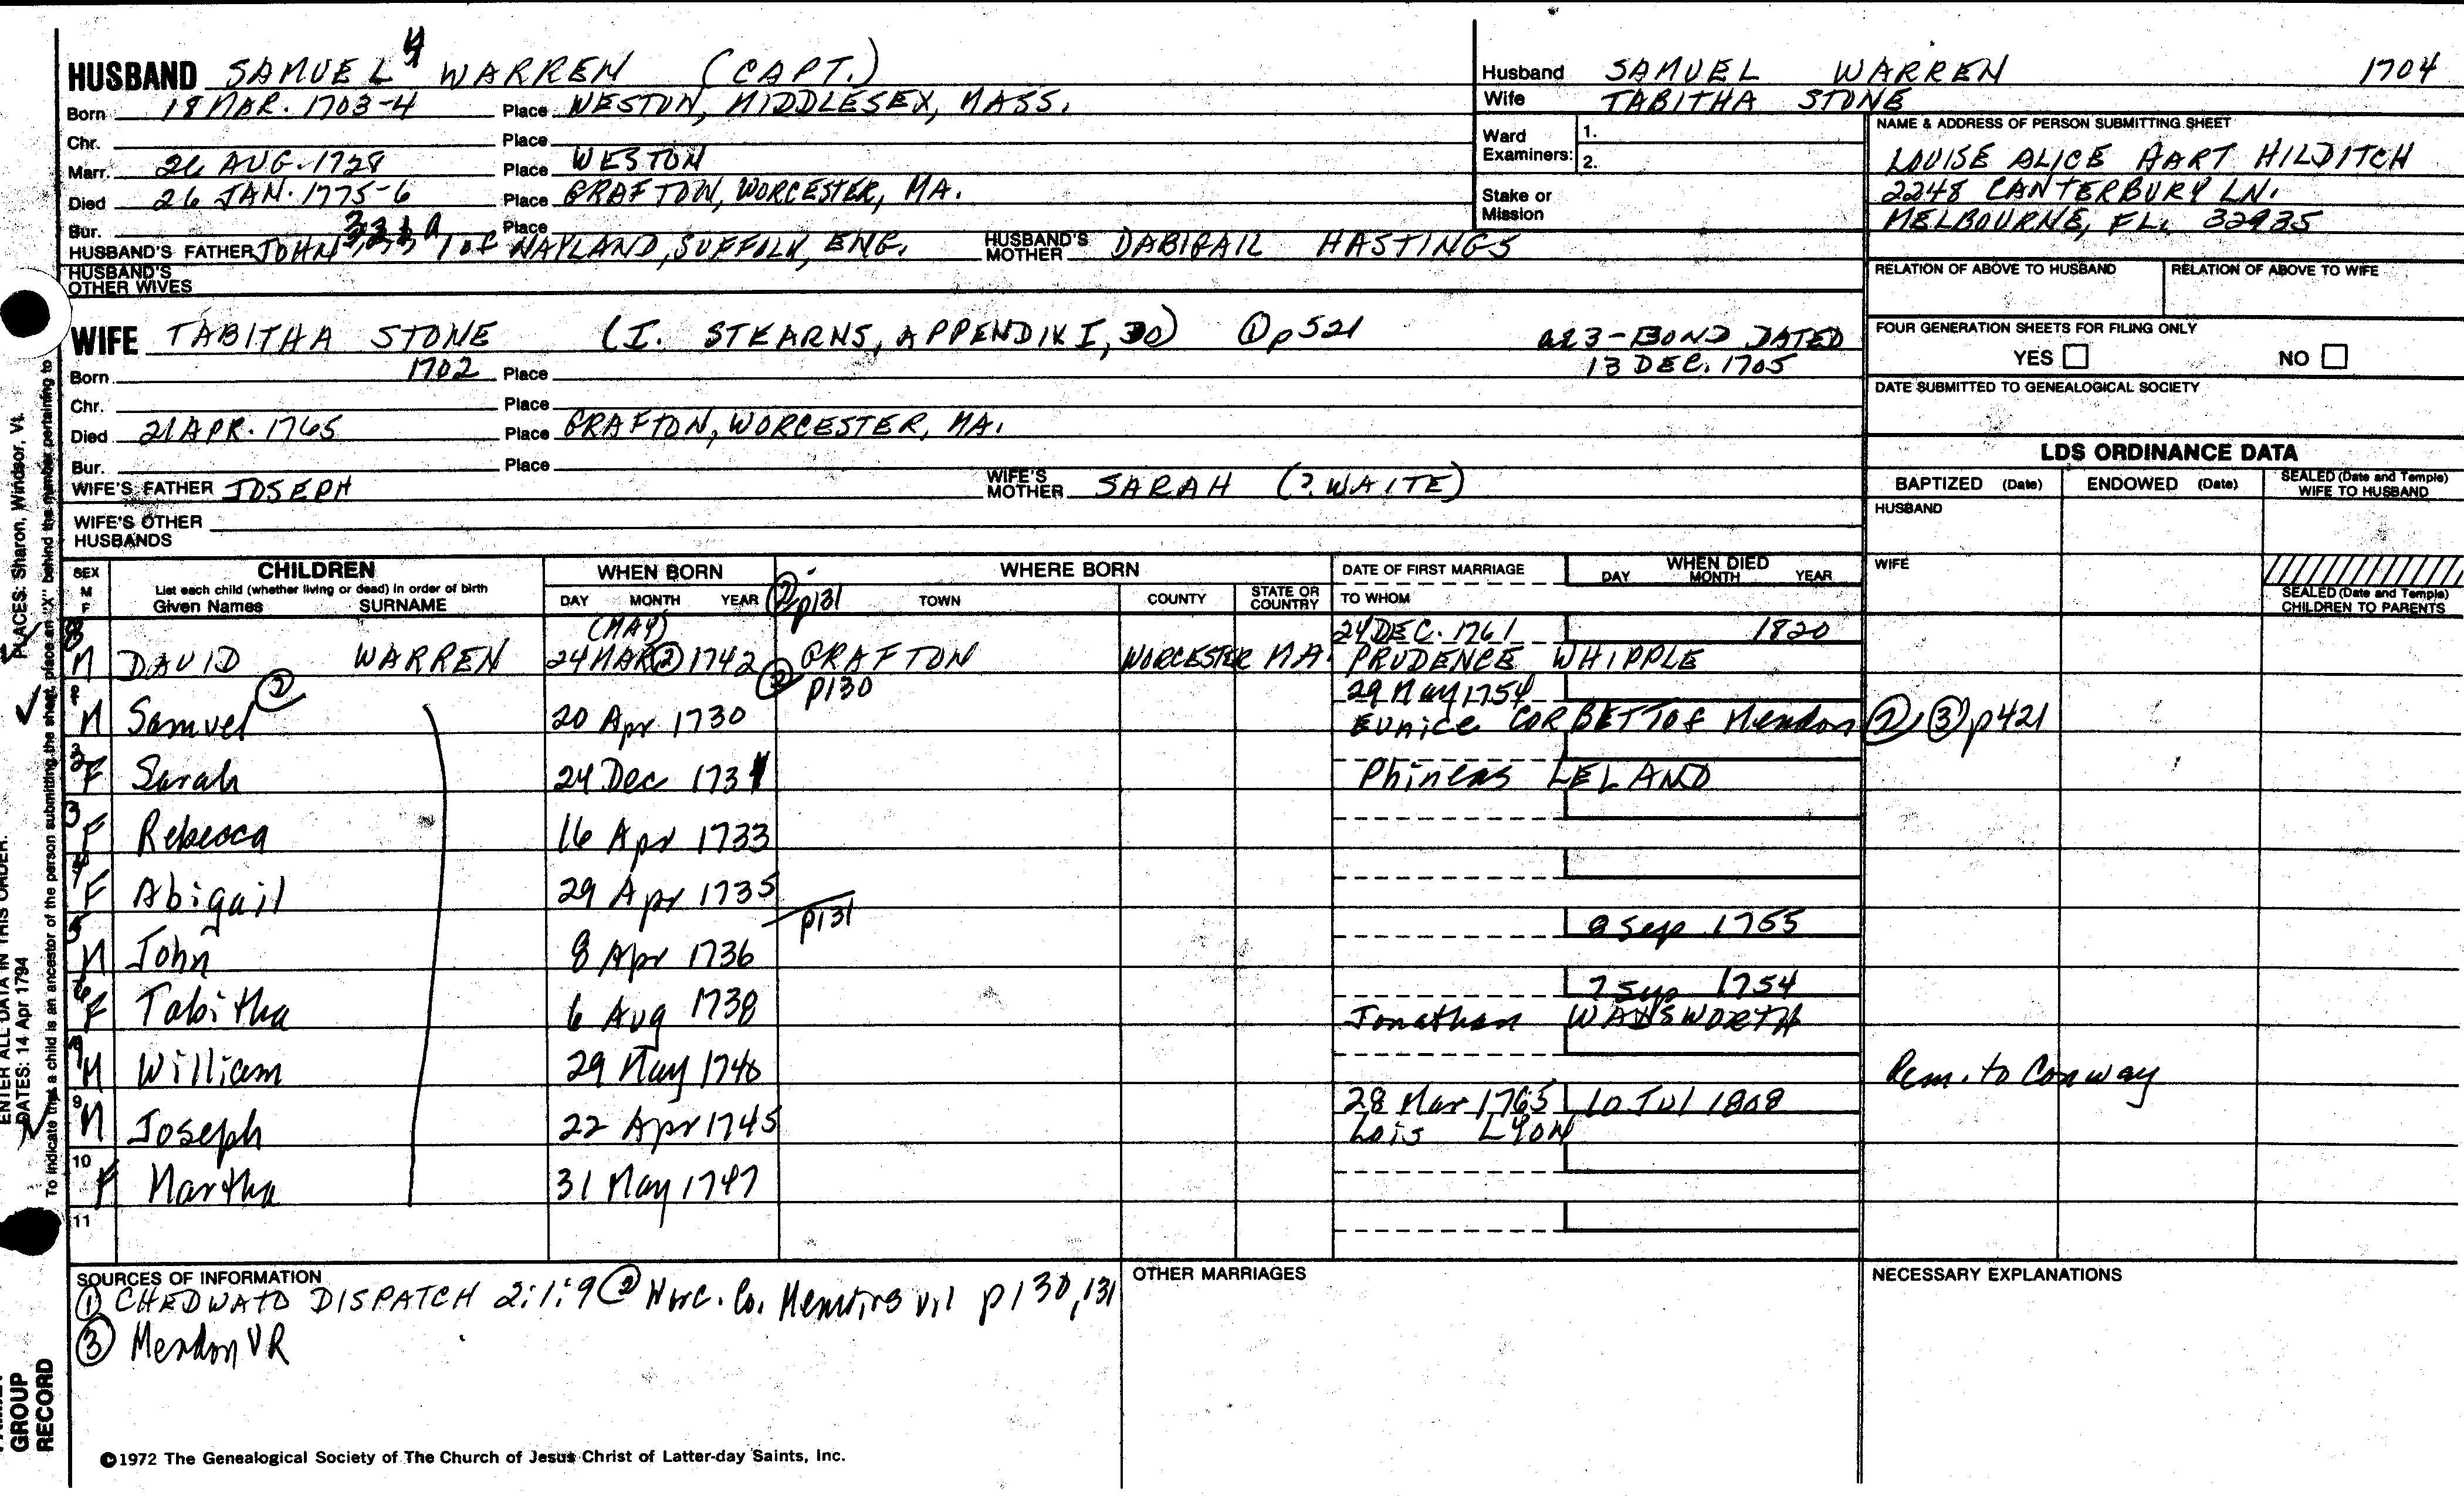 HUSBAND SAMUEL 4 WARREN (CAPT.)
Born 18 MAR. 1703-4 Place WESTON, MIDDLESEX, MASS.
Chr. Place
Marr. 26 AUG. 1728 Place WESTON
Died 26 JAN. 1775-6 Place GRAFTON, WORCESTER, MA.
Bur. Place
HUSBAND'S FATHER JOHN 1 OF NAYLAND, SUFFOLK, ENG. HUSBAND'S MOTHER DABIGAIL HASTINGS
HUSBAND'S OTHER WIVES
Husband SAMUEL WARREN 1704
Wife TABITHA STONE
Ward Examiners: 1.
2.
Stake or Mission
NAME & ADDRESS OF PERSON SUBMITTING SHEET
LOUISE ALICE HART HILDITCH
2248 CANTERBURY LN.
MELBOURNE, FL. 32935
RELATION OF ABOVE TO HUSBAND RELATION OF ABOVE TO WIFE
FOUR GENERATION SHEETS FOR FILING ONLY
YES NO
DATE SUBMITTED TO GENEALOGICAL SOCIETY
WIFE TABITHA STONE (I. STEARNS, APPENDIX I, 30) ① p521 a23-BOND DATED
Born 1702 Place 13 DEC. 1705
Chr. Place
Died 21 APR. 1765 Place GRAFTON, WORCESTER, MA.
Bur. Place
WIFE'S FATHER JOSEPH WIFE'S MOTHER SARAH (? WAITE)
WIFE'S OTHER HUSBANDS
LDS ORDINANCE DATA
BAPTIZED (Date) ENDOWED (Date) SEALED (Date and Temple) WIFE TO HUSBAND
HUSBAND
WIFE
SEALED (Date and Temple) CHILDREN TO PARENTS
SEX M F CHILDREN WHEN BORN WHERE BORN DATE OF FIRST MARRIAGE WHEN DIED
List each child (whether living or dead) in order of birth
Given Names SURNAME DAY MONTH YEAR ② p131 TOWN COUNTY STATE OR COUNTRY TO WHOM DAY MONTH YEAR
(MAY) 24 DEC. 1761 1820
8 M DAVID WARREN 24 MAR ② 1742 GRAFTON WORCESTER MA. PRUDENCE WHIPPLE
② ② p130 29 May 1754
M Samuel 20 Apr 1730 Eunice CORBETT of Mendon ②, ③ p421
F Sarah 24 Dec 1731 Phineas LELAND
3 F Rebecca 16 Apr 1733
4 F Abigail 29 Apr 1735
p131 9 Sep 1755
5 M John 8 Apr 1736
7 Sep 1754
6 F Tabitha 6 Aug 1738 Jonathan WADSWORTH
M William 29 May 1740 Rem. to Conway
28 Mar 1765 10 Jul 1808
9 M Joseph 22 Apr 1745 Lois LYON
10 F Martha 31 May 1747
11
SOURCES OF INFORMATION
① CHEDWATO DISPATCH 2:1:9 ② Worc. Co. Memoirs v1 p130, 131
③ Mendon VR
OTHER MARRIAGES
NECESSARY EXPLANATIONS
©1972 The Genealogical Society of The Church of Jesus Christ of Latter-day Saints, Inc.
GROUP
RECORD
ENTER ALL DATA IN THIS ORDER:
DATES: 14 Apr 1794
PLACES: Sharon, Windsor, Vt.
To indicate that a child is an ancestor of the person submitting the sheet, place an "X" behind the number pertaining to